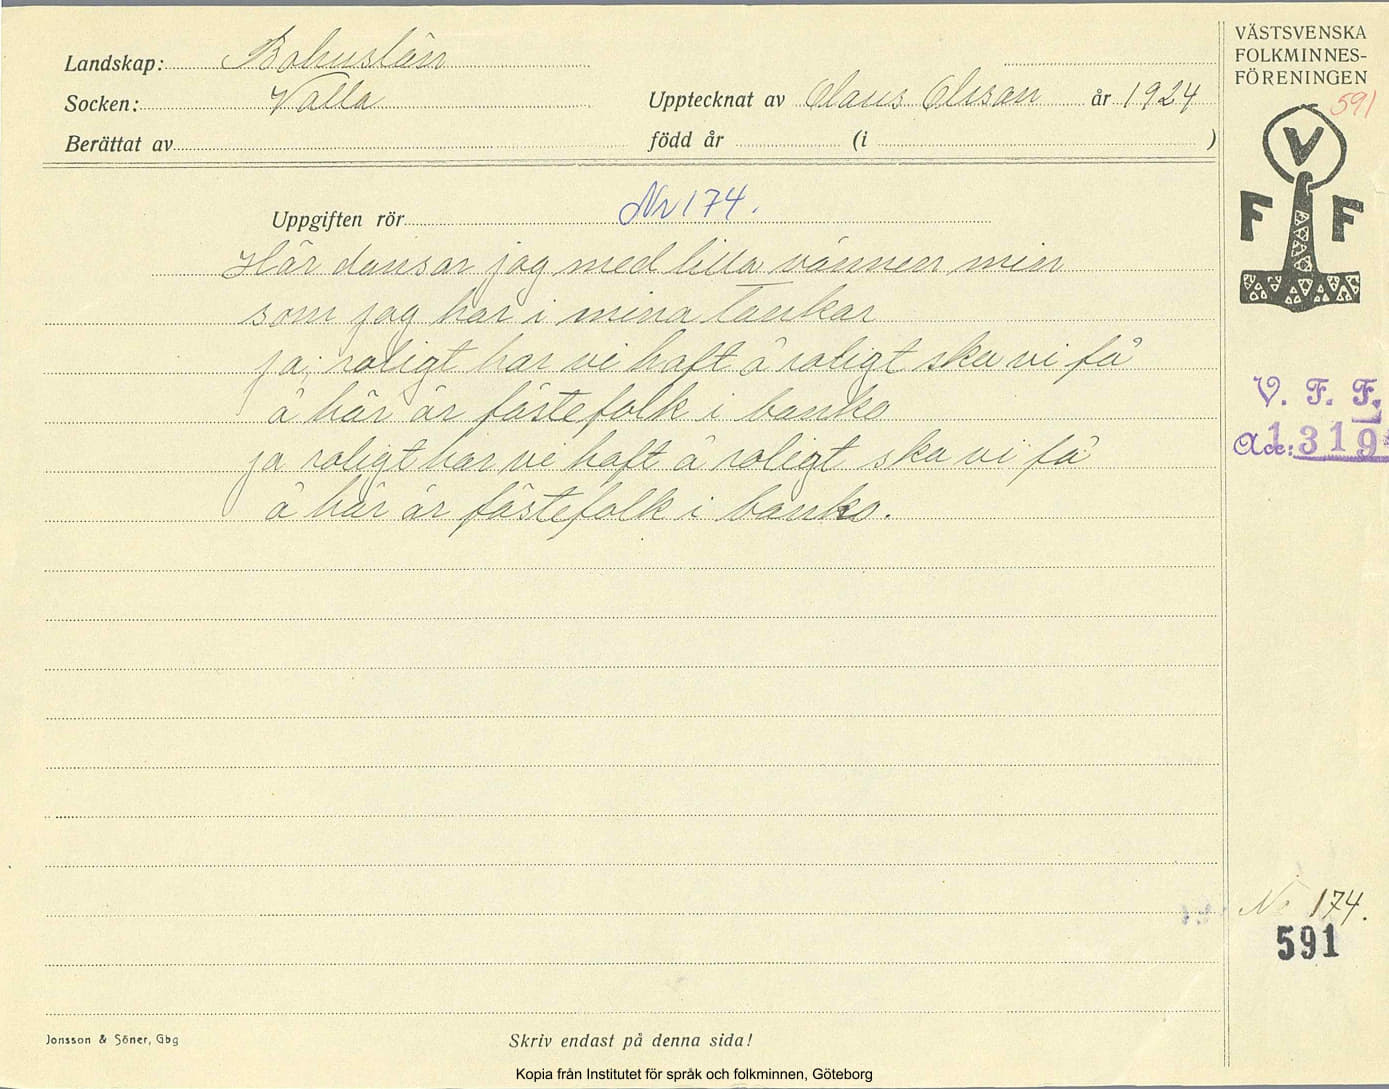 Landskap: Bohuslän
Socken: Valla
Upptecknat av Olaus Olsson år 1924
Berättat av
född år (i )
VÄSTSVENSKA
FOLKMINNES-
FÖRENINGEN
591
V
F F
Uppgiften rör Nr 174.
Här dansar jag med lilla vännen min
som jag har i mina tankar
ja, roligt har vi haft å roligt ska vi få
å här är fästefolk i banko
ja roligt har vi haft å roligt ska vi få
å här är fästefolk i banko.
V. F. F.
Acc: 1319
No 174.
591
Jonsson & Söner, Gbg
Skriv endast på denna sida!
Kopia från Institutet för språk och folkminnen, Göteborg